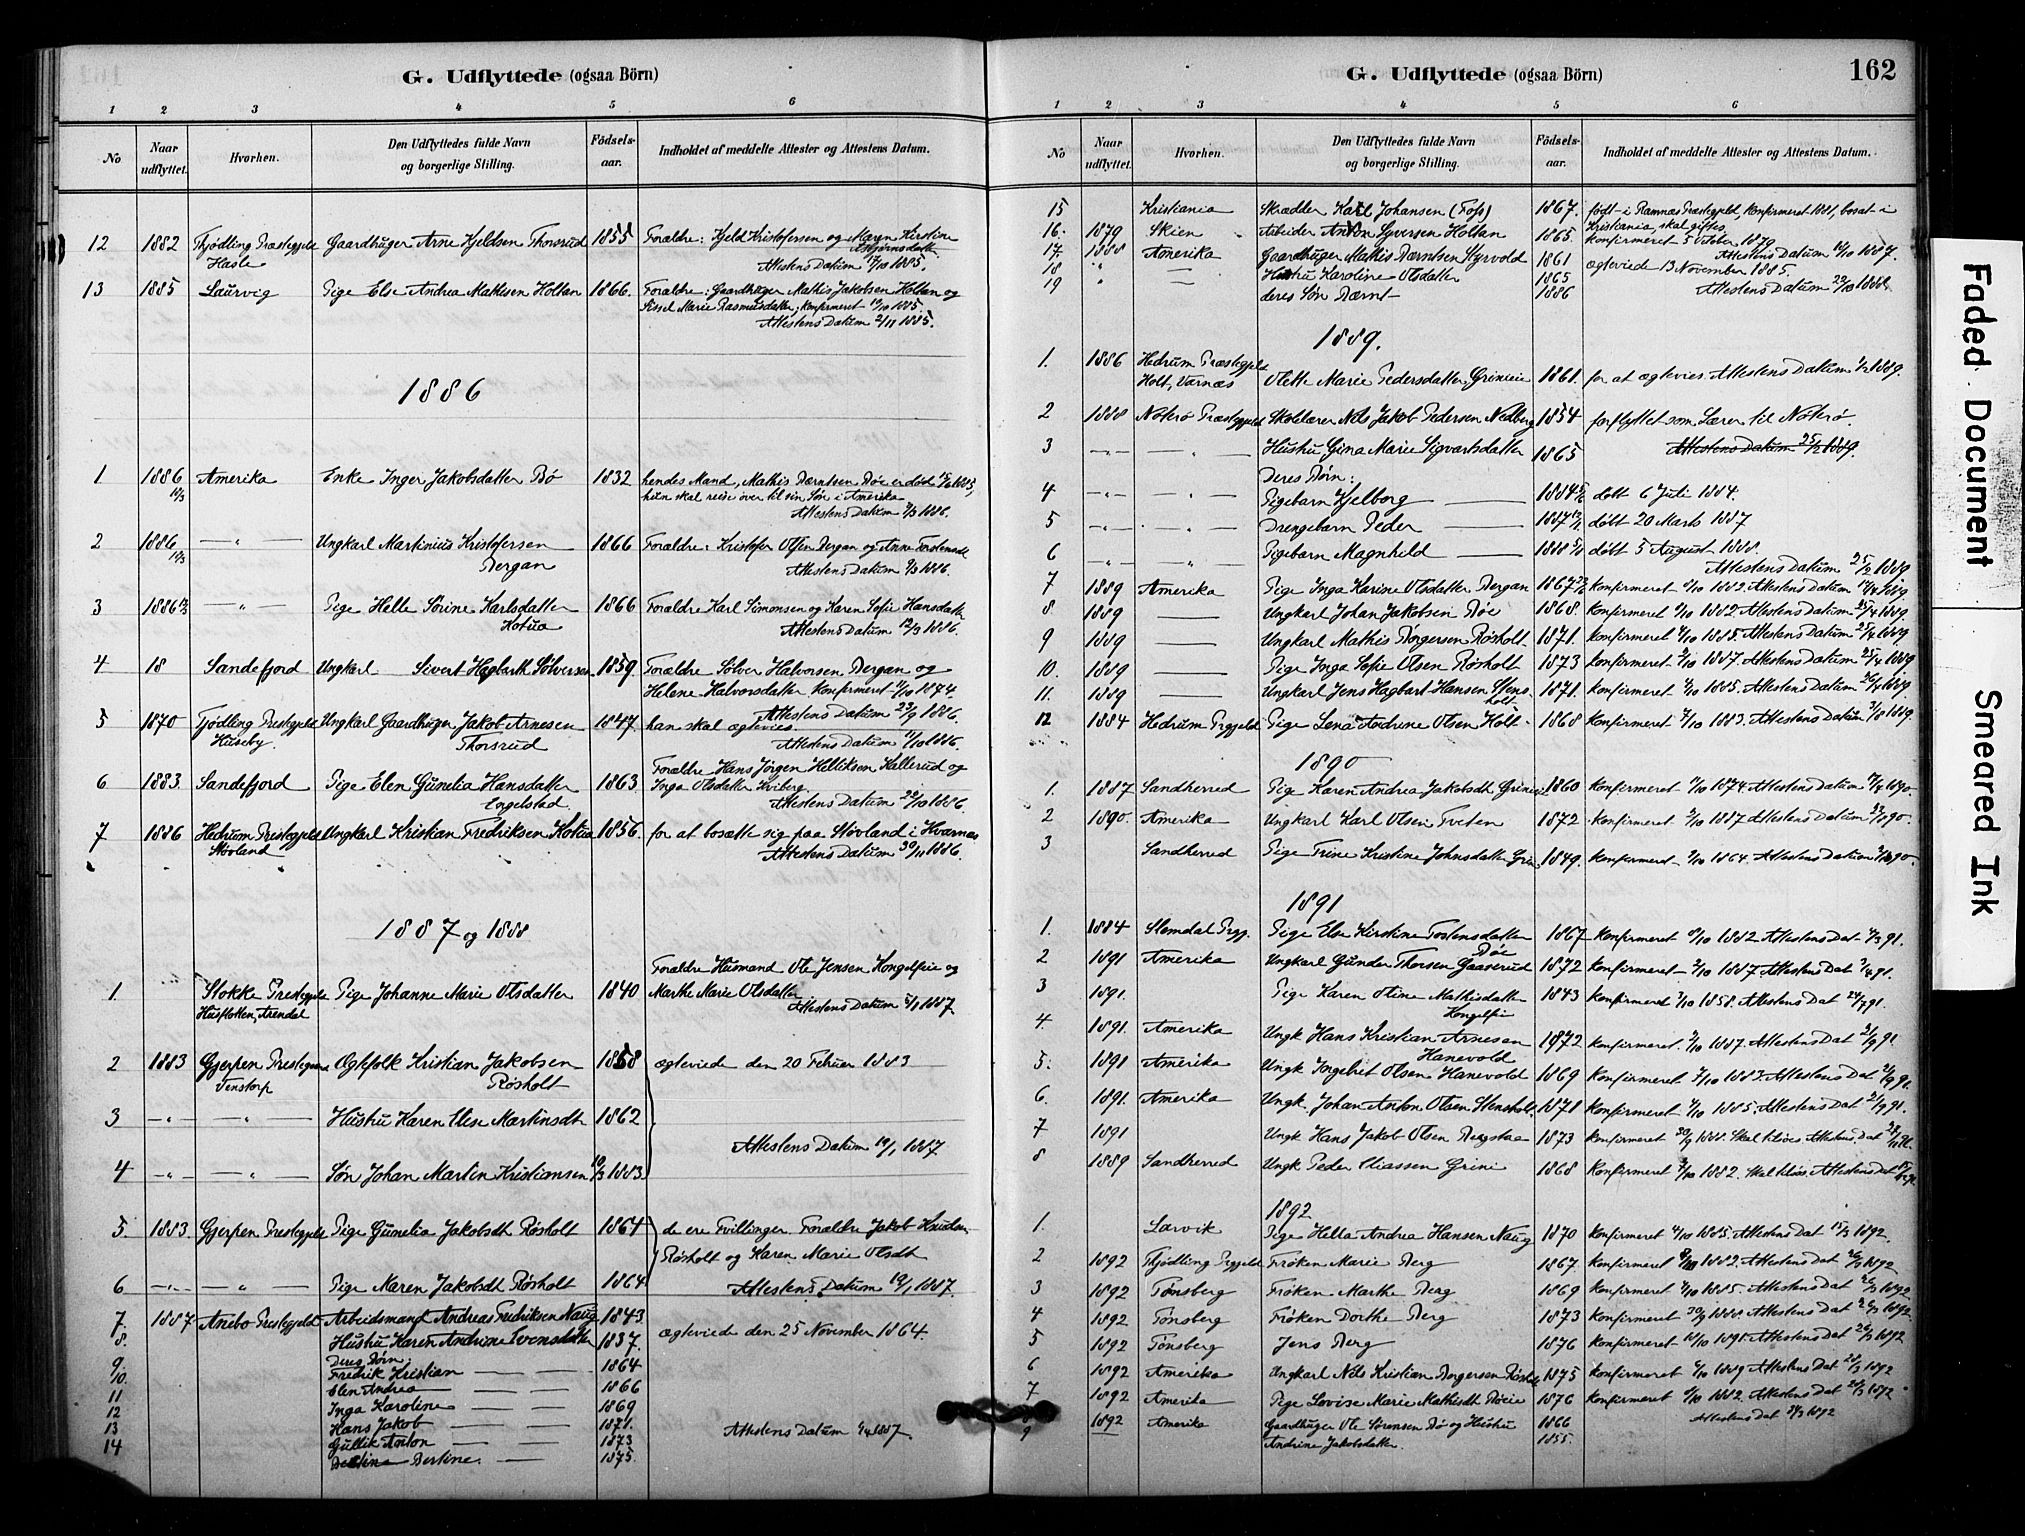 G. Udflyttede (ogsaa Börn)
1 2 3 4 5 6
No
Naar udflyttet.
Hvorhen.
Den Udflyttedes fulde Navn og borgerlige Stilling.
Födsels-aar.
Indholdet af meddelte Attester og Attestens Datum.
12 1882 Thjödling Præstegjeld Gaardbruger Arne Kjeldsen Thorsrud 1855 Forældre: Kjeld Kristofersen og Maren Kirstine
Hasle
Attestens Datum 17/10 1885.
13 1885 Laurvig Pige Else Andrea Mathisen Holtan 1866. Forældre: Gaardbruger Mathis Jakobsen Holtan og
Sissel Marie Rasmusdatter, konfirmeret
Attestens Datum 2/11 1885.
1886
1 1886 Amerika Enke Inger Jakobsdatter Bö 1832 hendes Mand, Mathis Berntsen Böe er död
hun skal reise over til sin Sön i Amerika
Attestens Datum 1886.
2 1886 —"— Ungkarl Martinius Kristofersen 1866 Forældre: Kristofer Olsen Bergan og Anne Torstensdt
Bergan Attestens Datum 1886.
3 1886 —"— Pige Helle Sörine Karlsdatter 1866 Forældre Karl Simonsen og Karen Sofie Hansdatter
Kotua Attestens Datum 12/3 1886.
4 18 Sandefjord Ungkarl Sivert Hagbarth Sölversen 1859. Forældre Sölver Halvorsen Bergan og
Helene Halvorsdatter konfirmeret 1874
Attestens Datum 23/9 1886.
5 1870 Tjödling Prestegjeld Ungkarl Gaardbruger Jakob Arnesen 1847. han skal ægtevies.
Huseby Thorsrud Attestens Datum 11/10 1886.
6 1883. Sandefjord Pige Elen Gunelia Hansdatter 1863 Forældre Hans Jörgen Helliksen Hallerud og
Engelstad. Inga Olsdatter
Attestens Datum 22/10 1886.
7 1886 Hedrum Prestegjeld Ungkarl Kristian Fredriksen Kotua 1856. for at bosætte sig paa Stövland i Hvarnes
Stövland Attestens Datum 30/11 1886.
1887 og 1888
Forældre Husmand Ole Jensen Kongelfeie og
1. Stokke Prestegjeld Pige Johanne Marie Olsdatter 1840 Marthe Marie Olsdatter
Arendal Attestens Datum 1887
2 1883 Gjerpen Ægtefolk Kristian Jakobsen 1858 ægteviede den 20 Februar 1883
Rösholt
3 —"— —"— Hustru Karen Elise Martinsdt 1862
Attestens Datum 19/1 1887
4 —"— —"— Sön Johan Martin Kristiansen 1883
5. 1883. Gjerpen Prestegjeld Pige Gunelia Jakobsdt Rösholt 1864 de ere Tvillinger. Forældre Jakob Knudsen
Rösholt og Karen Marie Olsdt
6 —"— —"— Pige Maren Jakobsdt Rösholt 1864 Attestens Datum 19/1 1887.
7. 1887 Anebo Prestegjeld Arbeidsmand Andreas Fredriksen Naug 1843.
8. Hustru Karen Andrine Evensdatter 1837. ægteviede den 25 November 1864.
Deres Börn
9 Fredrik Kristian 1864
10 Elen Andrea 1866
11 Inga Karoline 1869
12 Hans Jakob 1871.
13 Gullik Anton 1873 Attestens Datum 1887.
14 Bertine. 1875.
G. Udflyttede (ogsaa Börn)
162
1 2 3 4 5 6
No
Naar udflyttet.
Hvorhen.
Den Udflyttedes fulde Navn og borgerlige Stilling.
Födsels-aar.
Indholdet af meddelte Attester og Attestens Datum.
15 Kristiania Skrædder Karl Johansen (Foss) 1867. født i Ramnæs Præstegjeld, konfirmeret 1881, bosat i
Kristiania skal giftes
16. 1879 Skien Arbeider Anton Syversen Holtan 1865 konfirmeret 5 October 1879
Attestens Datum 1887.
17. 1888 Amerika Gaardbruger Mathis Berntsen Styrvold 1861 ægteviede 13 November 1885.
18 " — Hustru Karoline Olsdatter 1865
19 " — deres Sön Bernt 1886 Attestens Datum 22/10 1888.
1889.
1. 1886 Hedrum Præstegjeld
Holt, Varnæs Olette Marie Pedersdatter Grineie 1861. for at ægtevies. Attestens Datum 1889.
2 1888 Nöterö Præstegjeld Skolelærer Nils Jakob Pedersen Nedberg 1854 forflyttet som Lærer til Nöterö.
3 —"— —"— Hustru Gina Marie Sigvartsdatter 1865 Attestens Datum 25/2 1889.
Deres Börn:
4 —"— —"— Pigebarn Hjelborg 1884 döbt 6 Juli 1884.
5 —"— —"— Drengebarn Peder 1887 döbt 20 Marts 1887
6 —"— —"— Pigebarn Magnhild 1888 döbt 5 August 1888.
Attestens Datum 25/2 1889
7 1889 Amerika Pige Inga Karine Olsdatter Bergan 1867 konfirmeret 1882. Attestens Datum 1889
8 1889 — Ungkarl Johan Jakobsen Böe 1868. konfirmeret 1882. Attestens Datum 25/4 1889.
9 1889 — Ungkarl Mathis Börgersen Rösholt 1871. konfirmeret 4/10 1885. Attestens Datum 25/4 1889
10. 1889 — Pige Inga Sofie Olsen Rösholt 1873 konfirmeret 2/10 1887. Attestens Datum 25/4 1889
11. 1889 — Ungkarl Jens Hagbart Hansen Stensholt 1871. konfirmeret 4/10 1885. Attestens Datum 26/4 1889
12 1884 Hedrum Prgjeld Pige Lena Andrine Olsen Holt 1868 konfirmeret 7/10 1883. Attestens Datum 1889.
1890
1. 1887 Sandherred Pige Karen Andrea Jakobsdt Grinei 1860 konfirmeret 1874. Attestens Datum 1890.
2 1890. Amerika Ungkarl Karl Olsen Tveten 1872. konfirmeret 2/10 1887 Attestens Datum
3 Sandherred Pige Trine Kristine Johnsdatter Grini 1849. konfirmeret 1864. Attestens Datum
1891
1. 1884 Slemdal Prgj. Pige Else Kirstine Tostensdatter 1867 konfirmeret 1882. Attestens Dat 91.
Böe
2 1891 Amerika Ungkarl Gunder Thorsen Gaaserud 1872 konfirmeret 2/10 1887 Attestens Dat 91.
3 1891. Pige Karen Oline Mathisdatter 1843 konfirmeret 1858. Attestens Dat 24/7 91.
Kongelfei
4. 1891. Amerika Ungk Hans Kristian Arnesen 1872 konfirmeret. 2/10 1887. Attestens Dat 91.
Hanevold
5. 1891 Amerika Ungk Ingebret Olsen Hanevold 1869 konfirmeret 7/10 1883. Attestens Dat 91.
6. 1891. Amerika Ungk. Johan Anton Olsen Stensholt. 1871 konfirmeret 4/10 1885. Attestens Dat 91.
7 1891 Ungk Hans Jakob Olsen Bergstae 1873 konfirmeret 30/9 1888. Skal Attestens Dat
8 1889 Sandherred Ungk Peder Eliassen Grini 1868 konfirmeret 1882. Skal Attestens Dat
1892
1. Larvik Pige Hella Andrea Hansen Naug 1870 konfirmeret 4/10 1885. Attestens Dat 15/3 1892.
2 1892 Thjödling Prgjeld Fröken Marie Berg 1867. konfirmeret 1882. Attestens Dat 26/3 1892
3 1892 Tönsberg Fröken Marthe Berg 1869 konfirmeret 4/10 1885. Attestens Dat 26/3 1892.
4 1892 Tönsberg Fröken Dorthe Berg 1873 konfirmeret 30/9 1888. Attestens Dat 26/3 1892.
5 1892 Tönsberg Jens Berg 1876 konfirmeret 1891. Attestens Dat 26/3 1892
6 1892 Amerika Ungkarl Nils Kristian Börgersen Rösholt 1875 konfirmeret 1889 Attestens Dat 1892
7 1892 Amerika Pige Lovise Marie Mathisdt Böeie 1876 konfirmeret 1882. Attestens Dat 1892
8 1892 Amerika Gaardbruger Ole Sörensen Bö og Hustru 1866 Attestens Dat 1892
9 Andrine Jakobsdatter. 1855.
Faded Document
Smeared Ink